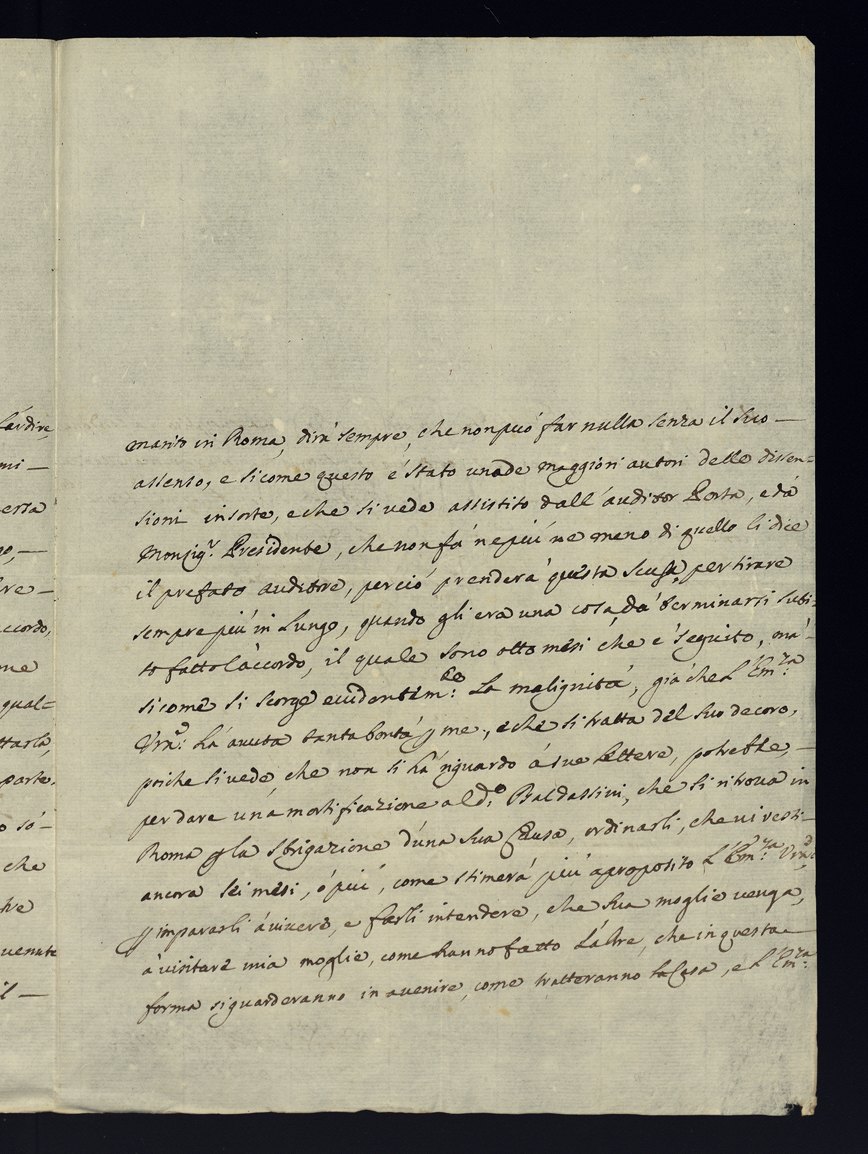 l'ardire,
mi —
ersa
o, —
re —
ccordo,
ne
qual=
ttarla,
parte,
o só-
che
tre
uenute
il —
marito in Roma, dirá sempre, che non può far nulla senza il suo —
assenso, e sicome questo é stato uno de maggiori autori delle dissen=
sioni insorte, e che si vede assistito dall'auditor Porta, e dá
Monsig.r Presidente, che non fá ne piú ne meno di quello li dice
il prefato auditore, perció prenderá questa scusa, per tirare
sempre piú in lungo, quando gli era una cosa dá terminarsi subi=
to fatto l'accordo, il quale sono otto mesi che é seguito, má
sicome si scorge euidentem:te la malignitá, giá che l'Em:za
Vrâ: há auuta tanta bontá p me, e che si tratta del suo decoro,
poiche si vede che non si há riguardo á sue lettere, potrebbe, —
per dare una mortificazione al d:o Baldassini, che si ritroua in
Roma p la sbrigazione d'una sua Causa, ordinarli, che ui resti
ancora sei mesi, ó piú, come stimerá piú aproposito l'Em:za Vrâ
p impararli á uiuere, e farli intendere, che sua moglie uenga,
á visitare mia moglie, come hanno fatto l'altre, che in questa
forma si guarderanno in auenire, come tratteranno la Casa, e l'Em:za